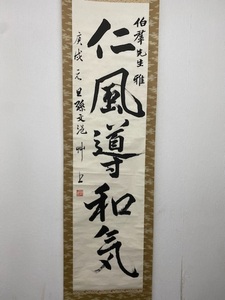 伯群先生雅
仁風導和気
庚戌元旦孫文泥艸上